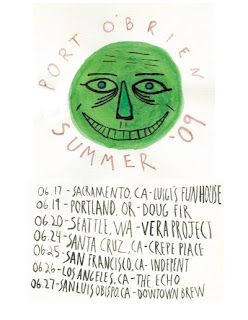 PORT O'BRIEN
SUMMER '09
06.17 - SACRAMENTO, CA - LUIGI'S FUNHOUSE
06.19 - PORTLAND, OR - DOUG FIR
06.20 - SEATTLE, WA - VERA PROJECT
06.24 - SANTA CRUZ, CA - CREPE PLACE
06.25 - SAN FRANCISCO, CA - INDEPENT
06.26 - LOS ANGELES, CA - THE ECHO
06.27 - SAN LUIS OBISPO, CA - DOWTOWN BREW